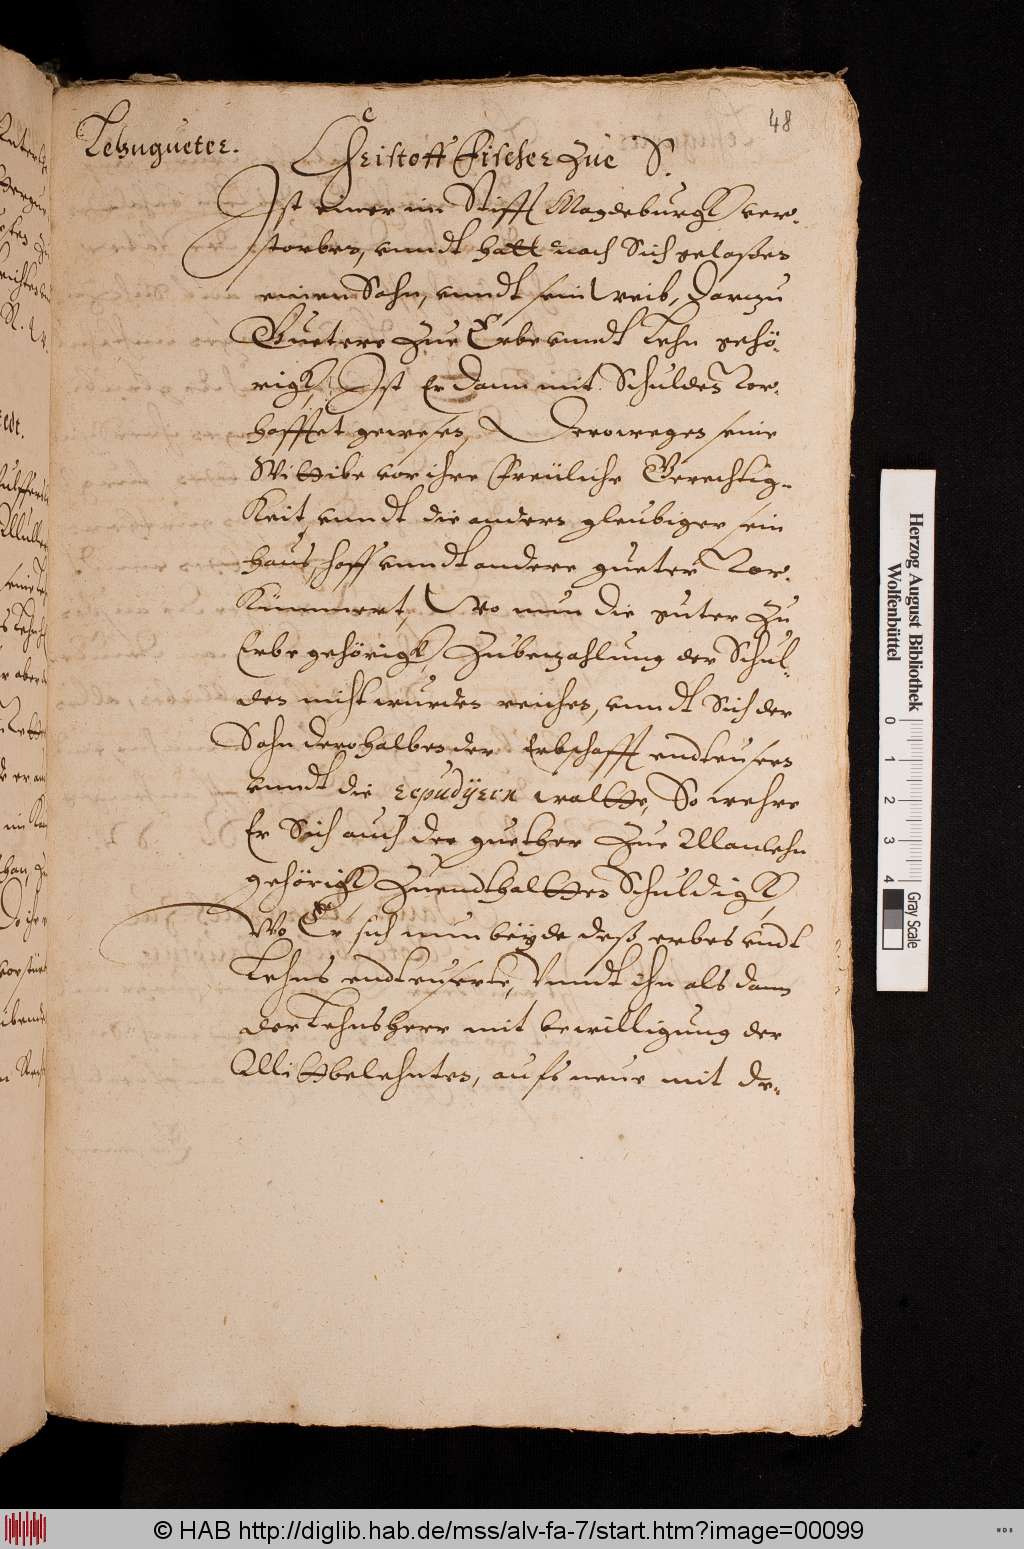 48
Lehngueter.
Christoff Fischer zue S.
Ist einer im Stifft Magdeburgk ver-
storben, vnndt hatt nach Sich gelaßen
einen Sohn, vnndt sein Weib, Darzu
Guetere zue Erbe vnndt Lehn gehö-
rigk, Ist Er dann mit Schulden vor-
hafftet gewesen, Derowegen seine
Wittibe vor ihre Freüliche Gerechtig-
keit vnndt die andern gleubiger sein
hauß, hoff vnndt andere gueter vor-
kümmert, Wo nun die guter zu
Erbe gehörigk zubezahlung der Schul-
den nicht wurden reichen, vnndt Sich der
Sohn derohalben der Erbschafft endteusern
vnndt die repudÿern wolte, So wehre
Er Sich auch der guether zue Manlehn
gehörigk zuendthalten Schuldigk,
Wo Er sich nun beÿde deß erbes vndt
Lehns endteuserte, Vnndt ihn als dann
der Lehnsherr mit bewilligung der
Mittbelehnten, aufs neue mit de-
Herzog August Bibliothek
Wolfenbüttel
0 1 2 3 4
Gray Scale
© HAB http://diglib.hab.de/mss/alv-fa-7/start.htm?image=00099